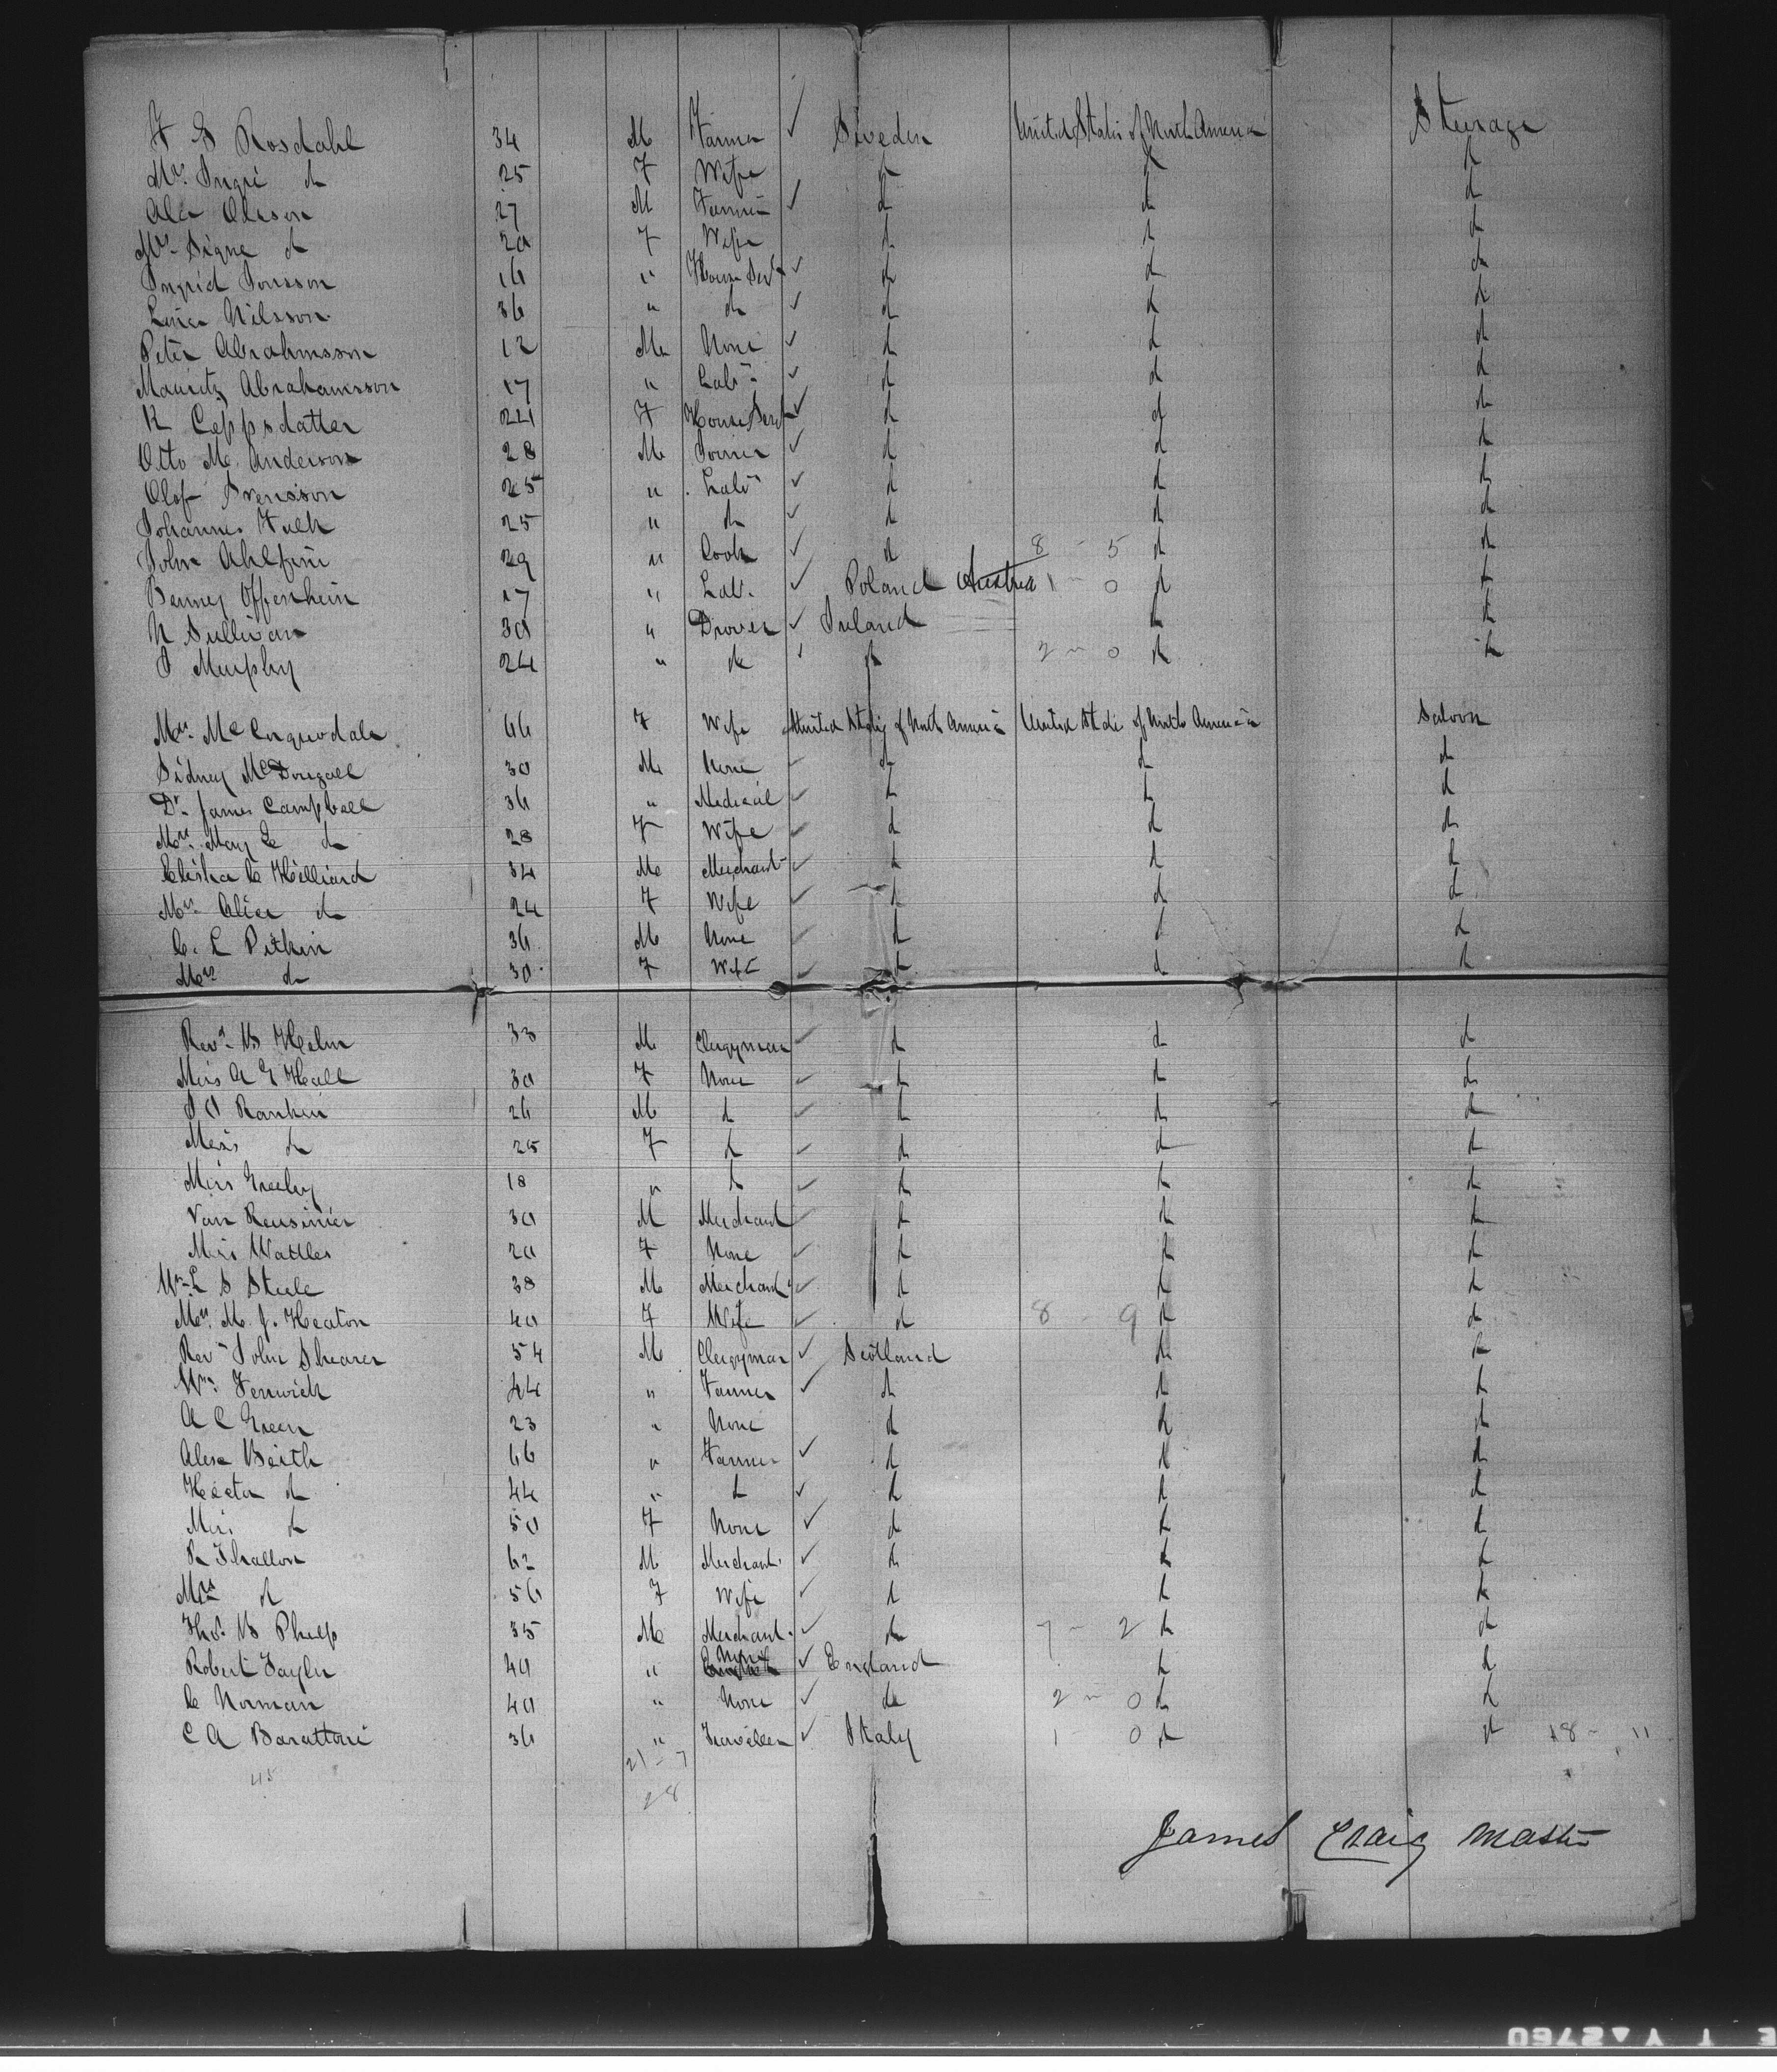 F G Rosdahl 34 M Farmer ✓ Sweden United States of North America Steerage
Mrs. Ingri do 25 F Wife do do do
Ola Olsson 27 M Farmer ✓ do do do
Mrs. Signe do 20 F Wife do do do
Ingrid Jonsson 16 " House Servt ✓ do do do
Lina Nilsson 36 " do ✓ do do do
Peter Abrahmsson 12 M None ✓ do do do
Mauritz Abrahamsson 17 " Labr ✓ do do do
K Ceppsdatter 24 F House Servt ✓ do do do
Otto M. Anderson 28 M Joiner ✓ do do do
Olof Svensson 25 " Labr ✓ do do do
Johannes 25 " do ✓ do do do
John 29 " Cook ✓ do 8 - 5 do do
Benney Offenhein 17 " Lab. ✓ Poland Austria 1 - 0 do do
N Sullivan 30 " Drover ✓ Ireland do do
J Murphy 24 " do ✓ do 2 - 0 do do
Mrs. McCorquodale 46 F Wife United States of North America United States of North America Saloon
Sidney McDougall 30 M None ✓ do do do
Dr. James Campbell 36 " Medical ✓ do do do
Mrs. Mary E do 28 F Wife ✓ do do do
Elisha E Hilliard 34 M Merchant ✓ do do do
Mrs. Alice do 24 F Wife ✓ do do do
C. L Pitkin 36 M None ✓ do do do
Mrs do 30 F Wife ✓ do do do
Revd. B Helm 33 M Clergyman ✓ do do do
Miss A E Hall 30 F None ✓ do do do
J O Rankin 26 M do ✓ do do do
Miss do 25 F do ✓ do do do
Miss Greeley 18 " do ✓ do do do
Van Rensinier 30 M Merchant ✓ do do do
Miss Wattles 20 F None ✓ do do do
L S Steele 38 M Merchant ✓ do do do
Mrs. M. J. Heaton 40 F Wife ✓ do 8 - 9 do do
Revd John Shearer 54 M Clergyman ✓ Scotland do do
Wm. Fenwick 44 " Farmer ✓ do do do
A C Green 23 " None do do do
Alexr Beith 46 " Farmer ✓ do do do
Hector do 44 " do ✓ do do do
Miss do 50 F None ✓ do do do
R Thallon 62 M Merchant ✓ do do do
Mrs do 56 F Wife ✓ do do do
Thos. B Phelp 35 M Merchant ✓ do 7 - 2 do do
Robert Taylor 40 " None ✓ England do do
C Norman 40 " None ✓ do 2 - 0 do do
C A Barattoni 36 " Traveller ✓ Italy 1 - 0 do do 18 - 11
45 21 - 7
28
James Craig Master